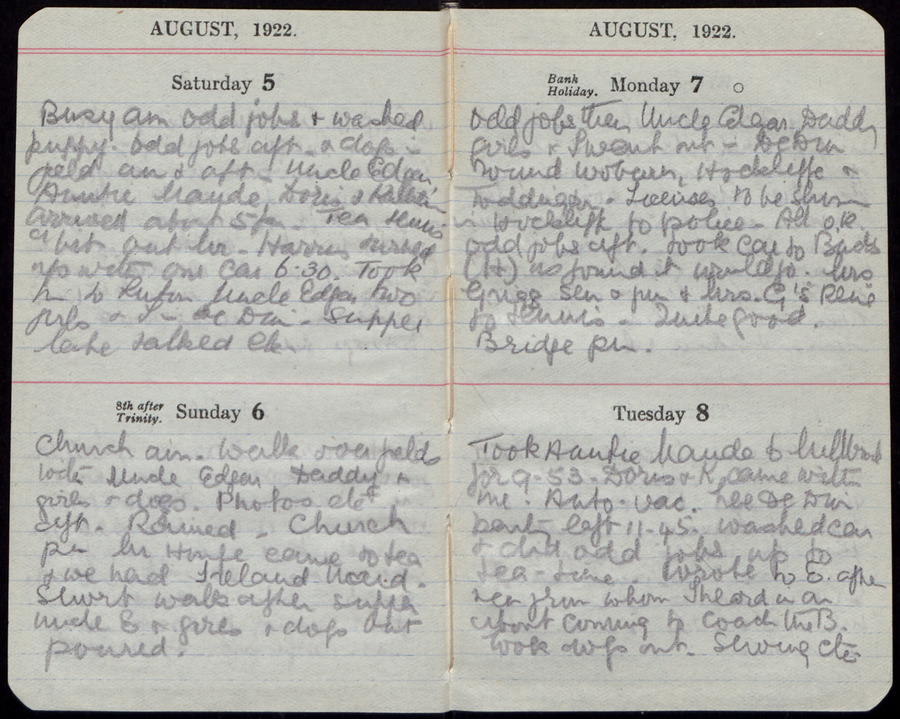 AUGUST, 1922.
Saturday 5
Busy am odd jobs & washed
puppy. odd jobs aft. & dogs -
field am & aft - Uncle Edgar,
Auntie Maude, Doris & Kathleen
arrived about 5 pm Tea tennis
Harris turned
up with one car 6.30. Took
to Uncle Edgar two
girls & I - De Dion - Supper
late talked etc.
8th after Trinity. Sunday 6
Church am. Walk over fields
with Uncle Edgar Daddy &
girls & dogs. Photos etc
aft. Rained - Church
pm came to tea
& we had
Short walk after supper
Uncle E & girls & dogs out
poured.
AUGUST, 1922.
Bank Holiday. Monday 7
odd jobs then Uncle Edgar, Daddy,
girls & I went out - De Dion
round Woburn, Hockliffe &
Toddington. Licenses to be shown
in Hockliffe to police - All O.K
odd jobs aft. Took car to
(H) found it Mrs
Grigg sen & & Mrs. G's
to tennis - Quite good.
Bridge pm.
Tuesday 8
Took Auntie Maude to
for 9-53. Doris & K. came with
me. Auto-vac. De Dion
left 11.45. washed car
& did odd jobs up to
tea-time. Wrote to E. after
tea from whom I heard
about coming to coach
Took dogs out. etc.